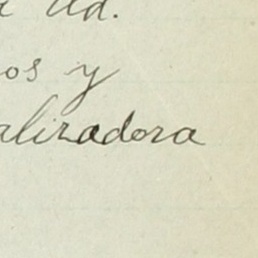 a Ud.
os y
alizadora